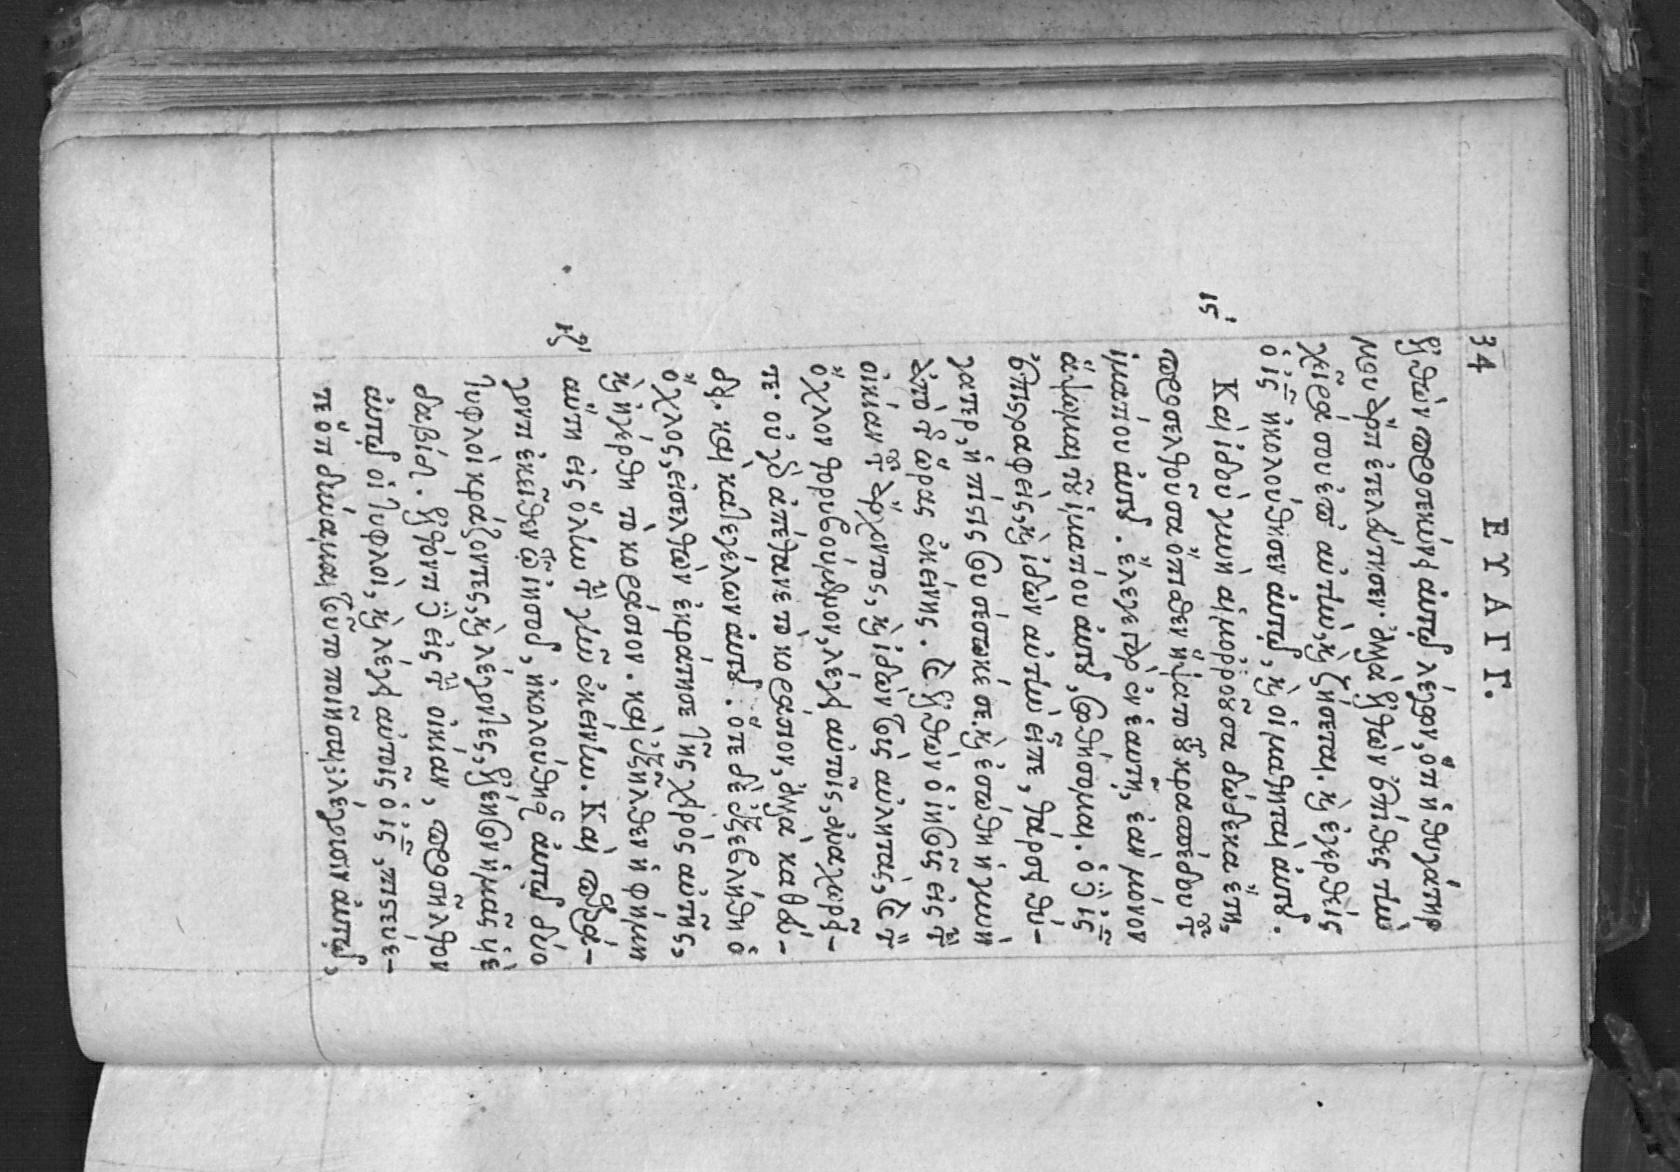 34 ΕΥΑΓΓ.
ἐλθὼν προσεκύνει αὐτῷ λέγων, ὅτι ἡ θυγάτηρ
μου ἄρτι ἐτελεύτησεν· ἀλλὰ ἐλθὼν ἐπίθες τὴν
χεῖρά σου ἐπ' αὐτὴν, καὶ ζήσεται. καὶ ἐγερθεὶς
ὁ ις̅ ἠκολούθησεν αὐτῷ, καὶ οἱ μαθηταὶ αὐτοῦ.
ιϛ´ Καὶ ἰδοὺ γυνὴ αἱμοῤῥοοῦσα δώδεκα ἔτη,
προσελθοῦσα ὄπισθεν ἥψατο τοῦ κρασπέδου τοῦ
ἱματίου αὐτοῦ. ἔλεγε γὰρ ἐν ἑαυτῇ, ἐὰν μόνον
ἅψωμαι τοῦ ἱματίου αὐτοῦ, σωθήσομαι. ὁ δὲ ις̅
ἐπιστραφεὶς, καὶ ἰδὼν αὐτὴν εἶπε, θάρσει θύ-
γατερ, ἡ πίστις σου σέσωκέ σε. καὶ ἐσώθη ἡ γυνὴ
ἀπὸ τῆς ὥρας ἐκείνης. καὶ ἐλθὼν ὁ ιησοῦς εἰς τὴν
οἰκίαν τοῦ ἄρχοντος, καὶ ἰδὼν τοὺς αὐλητὰς, καὶ τὸν
ὄχλον θορυβούμενον, λέγει αὐτοῖς, ἀναχωρεῖ-
τε· οὐ γὰρ ἀπέθανε τὸ κοράσιον, ἀλλὰ καθεύ-
δει. καὶ κατεγέλων αὐτοῦ. ὅτε δὲ ἐξεβλήθη ὁ
ὄχλος, εἰσελθὼν ἐκράτησε τῆς χειρὸς αὐτῆς,
καὶ ἠγέρθη τὸ κοράσιον. καὶ ἐξῆλθεν ἡ φήμη
ιζ´ αὕτη εἰς ὅλην τὴν γῆν ἐκείνην. Καὶ παρά-
γοντι ἐκεῖθεν τῷ ἰησοῦ, ἠκολούθησαν αὐτῷ δύο
τυφλοὶ κράζοντες, καὶ λέγοντες, ἐλέησον ἡμᾶς υἱὲ
δαβίδ. ἐλθόντι δὲ εἰς τὴν οἰκίαν, προσῆλθον
αὐτῷ οἱ τυφλοὶ, καὶ λέγει αὐτοῖς ὁ ις̅, πιστεύε-
τε ὅτι δύναμαι τοῦτο ποιῆσαι; λέγουσιν αὐτῷ,